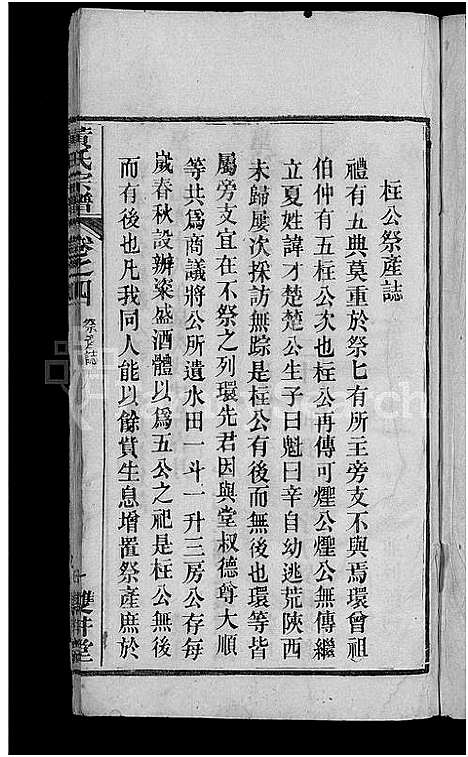 枉公祭產誌
禮有五典莫重於祭匕有所主旁支不與焉環曾祖
伯仲有五枉公次也枉公再傳可燿公燿公無傳繼
立夏姓諱才楚楚公生子曰魁曰辛自幼逃荒陝西
未歸屢次採訪無踪是枉公有後而無後也環等皆
屬旁文宜在不祭之列環先君因與堂叔德尊大順
等共爲商議將公所遺水田一斗一升三房公存每
嵗春秋設辦粢盛酒醴以爲五公之祀是枉公無後
而有後也凡我同人能以餘貲生息增置祭產庶於
黃氏宗譜
卷之四
祭產誌
雙井堂